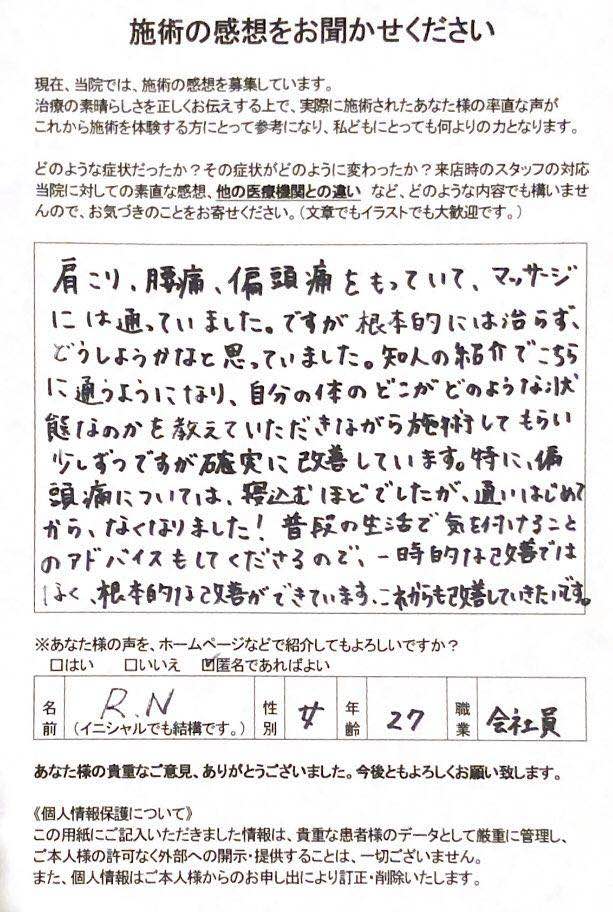 施術の感想をお聞かせください
現在、当院では、施術の感想を募集しています。
治療の素晴らしさを正しくお伝えする上で、実際に施術されたあなた様の率直な声が
これから施術を体験する方にとって参考になり、私どもにとっても何よりの力となります。
どのような症状だったか？その症状がどのように変わったか？来店時のスタッフの対応
当院に対しての素直な感想、他の医療機関との違い など、どのような内容でも構いませ
んので、お気づきのことをお寄せください。（文章でもイラストでも大歓迎です。）
肩こり、腰痛、偏頭痛をもっていて、マッサージ
には通っていました。ですが根本的には治らず、
どうしようかなと思っていました。知人の紹介でこちら
に通うようになり、自分の体のどこがどのような状
態なのかを教えていただきながら施術してもらい
少しずつですが確実に改善しています。特に、偏
頭痛については、寝込むほどでしたが、通いはじめて
から、なくなりました！普段の生活で気を付けること
のアドバイスもしてくださるので、一時的な改善では
なく、根本的な改善ができています。これからも改善していきたいです。
※あなた様の声を、ホームページなどで紹介してもよろしいですか？
□はい □いいえ ☑匿名であればよい
名前 R.N （イニシャルでも結構です。） 性別 女 年齢 27 職業 会社員
あなた様の貴重なご意見、ありがとうございました。今後ともよろしくお願い致します。
《個人情報保護について》
この用紙にご記入いただきました情報は、貴重な患者様のデータとして厳重に管理し、
ご本人様の許可なく外部への開示・提供することは、一切ございません。
また、個人情報はご本人様からのお申し出により訂正・削除いたします。